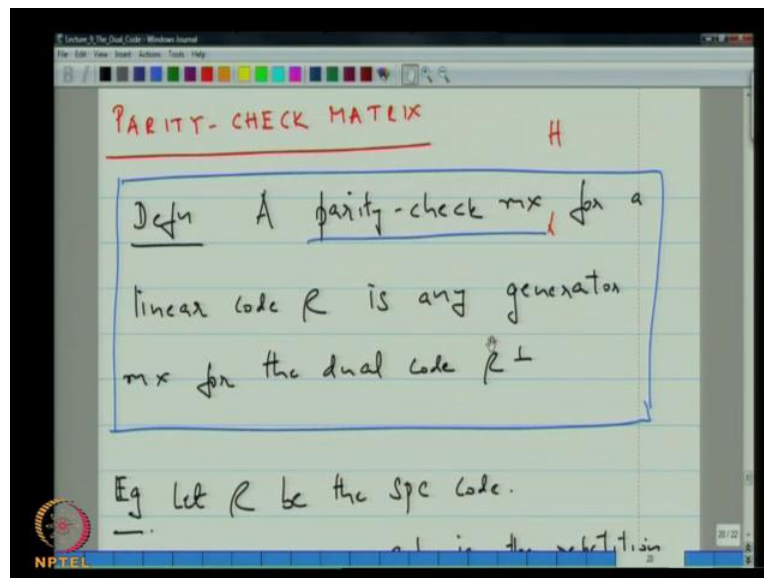 Lecture_9_The_Dual_Code - Windows Journal
File Edit View Insert Actions Tools Help
PARITY-CHECK MATRIX
H
Defn A parity-check mx for a
linear code C is any generator
mx for the dual code C⊥
Eg Let C be the SPC code.
is the repetition
20/22
20
NPTEL